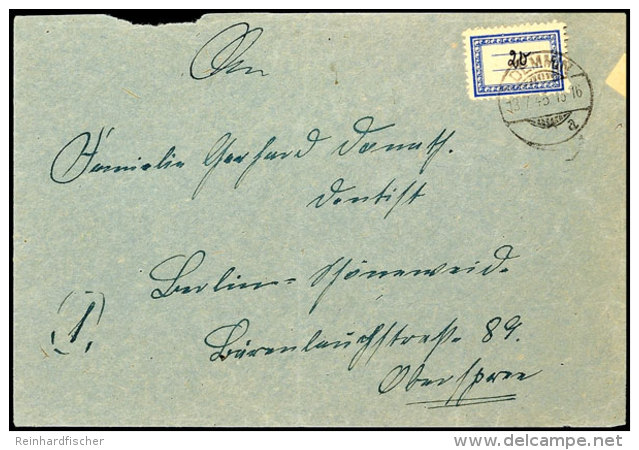 20
DEMMIN
13.7.45.15-16
a
An
Familie Gerhard Donath.
Dentist
Berlin-Schöneweid.
Bärenlauchstraße 89.
Oberspree
1
Reinhardfischer
delcampe.net